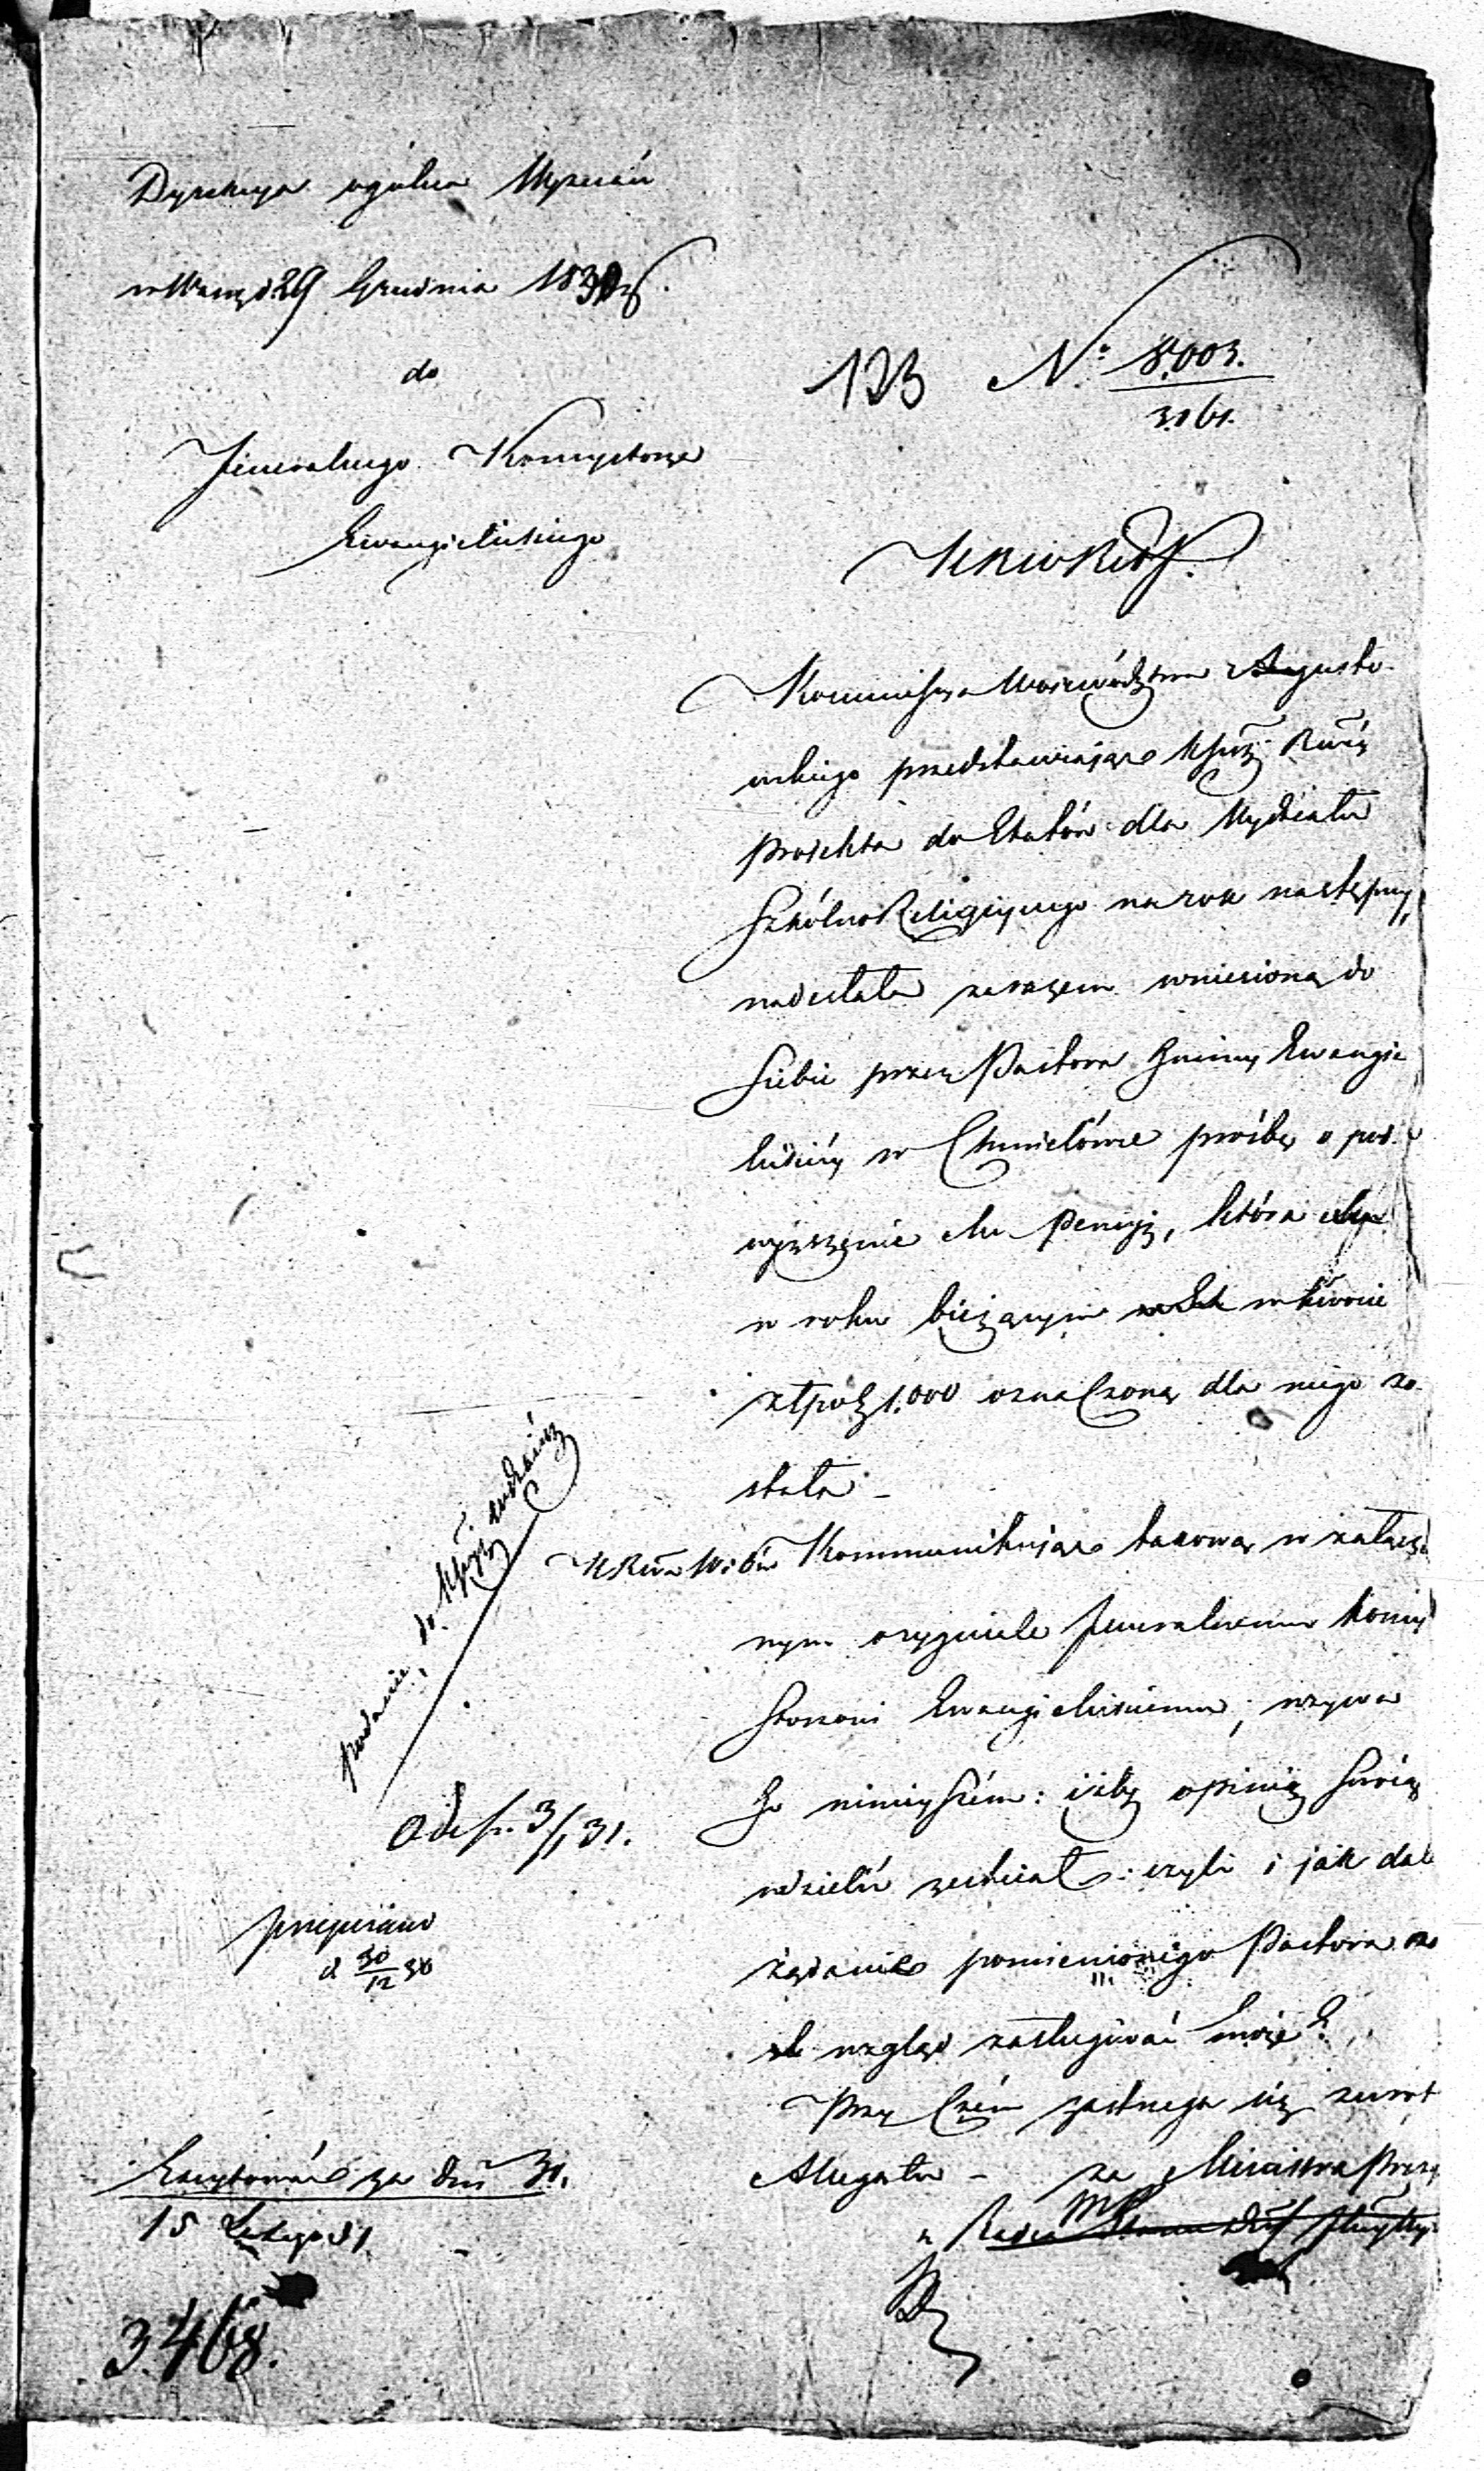 Dyrekcya ogólna Wyznań
w Warsz. d. 29 Grudnia 1830 r.
do
Jeneralnego Konsystorza
Ewangielickiego
123 No 8.003.
3161.
Kommissya Województwa Augusto-
wskiego przedstawiając
projekta do Etatów dla Wydziału
Szkólno Religijnego na rok następny,
nadesłała zarazem wniesioną do
siebie przez Pastora Gminy Ewangie
lickiéy w Chmielówce prośbę o pod-
wyższenie Mu Pensyi, która
w roku bieżącym w kwocie
złpol 1.000 oznaczoną dla niego zo-
stała -
Kommunikując takową w załączo
nym oryginale Jeneralnemu Konsy
storzowi Ewangielickiemu, wzywa
Go ninieyszém: iżby opinię swoią
udzielić zechciał: czyli i jak dale
żądanie pomienionego Pastora na
wzgląd zasługiwać może?
Przy czém zastrzega się zwrot
Allegatu - za Ministra Prezy
Radca Stanu
podanie, do
Odesł. 3/1 31.
przepisano
d 30/12 30
Exc̄ytowano za dnī 30.
15 Lutego 31
3.468.